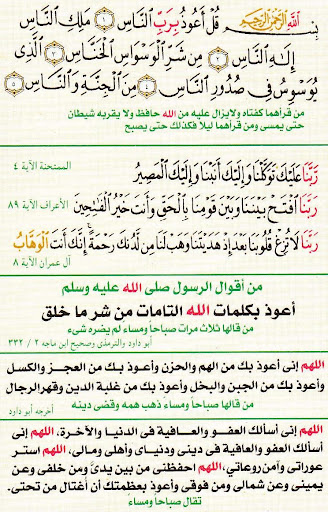 بِسْمِ اللَّهِ الرَّحْمَنِ الرَّحِيمِ
قُلْ أَعُوذُ بِرَبِّ النَّاسِ ١ مَلِكِ النَّاسِ
٢ إِلَهِ النَّاسِ ٣ مِن شَرِّ الْوَسْوَاسِ الْخَنَّاسِ ٤ الَّذِي
يُوَسْوِسُ فِي صُدُورِ النَّاسِ ٥ مِنَ الْجِنَّةِ وَالنَّاسِ ٦
من قرأهما كفتاه ولايزال عليه من الله حافظ ولا يقربه شيطان
حتى يمسى ومن قرأهما ليلاً فكذلك حتى يصبح
رَبَّنَا عَلَيْكَ تَوَكَّلْنَا وَإِلَيْكَ أَنَبْنَا وَإِلَيْكَ الْمَصِيرُ الممتحنة الآية ٤
رَبَّنَا افْتَحْ بَيْنَنَا وَبَيْنَ قَوْمِنَا بِالْحَقِّ وَأَنتَ خَيْرُ الْفَاتِحِينَ الأعراف الآية ٨٩
رَبَّنَا لَا تُزِغْ قُلُوبَنَا بَعْدَ إِذْ هَدَيْتَنَا وَهَبْ لَنَا مِن لَّدُنكَ رَحْمَةً إِنَّكَ أَنتَ الْوَهَّابُ
آل عمران الآية ٨
من أقوال الرسول صلى الله عليه وسلم
أعوذ بكلمات الله التامات من شر ما خلق
من قالها ثلاث مرات صباحاً ومساء لم يضره شىء
أبو داود والترمذى وصحيح ابن ماجه ٢ / ٣٣٢
اللهم إنى أعوذ بك من الهم والحزن وأعوذ بك من العجز والكسل
وأعوذ بك من الجبن والبخل وأعوذ بك من غلبة الدين وقهر الرجال
من قالها صباحاً ومساءً ذهب همه وقضى دينه
أخرجه أبو داود
اللهم إنى أسألك العفو والعافية فى الدنيا والآخرة، اللهم إنى
أسألك العفو والعافية فى دينى ودنياى وأهلى ومالى، اللهم استر
عوراتى وآمن روعاتى، اللهم احفظنى من بين يدى ومن خلفى وعن
يمينى وعن شمالى ومن فوقى وأعوذ بعظمتك أن أغتال من تحتى.
تقال صباحاً ومساءً